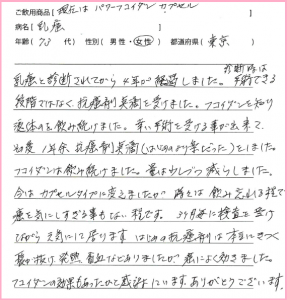 ご飲用商品[現在は パワーフコイダンカプセル
病名[乳癌 ]
年齢(73 代) 性別(男性・女性) 都道府県[東京
診断時は
乳癌と診断されてから4年が経過しました。手術できる
段階ではなく、抗癌剤治療を受けました。フコイダンを知り
液体のを飲み続けました。幸い手術を受ける事が出来て、
再度1年余抗癌剤治療(はじめのより楽だった)をしました。
フコイダンは飲み続けました。量は少しづつ減らしました。
今はカプセルタイプに変えましたが 時には飲み忘れる程で
癌を気にしすぎる事もない程です。3ヶ月毎に検査を受け
ながら元気にして居ります はじめの抗癌剤は本当にきつく
髪が抜け 発熱 貧血などありましたが 癌によく効きました。
フコイダンの効果もあったかと感謝しています ありがとうございます。